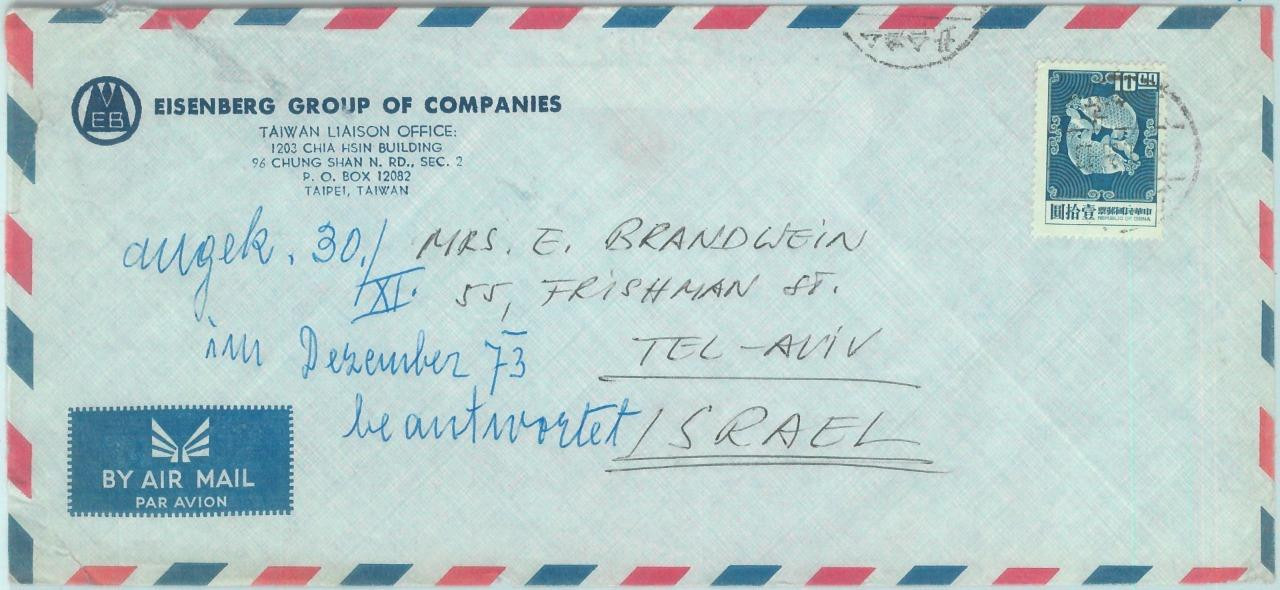 EISENBERG GROUP OF COMPANIES
EB
TAIWAN LIAISON OFFICE:
1203 CHIA HSIN BUILDING
96 CHUNG SHAN N. RD., SEC. 2
P. O. BOX 12082
TAIPEI, TAIWAN
10.00
中華民國郵票
REPUBLIC OF CHINA
壹拾圓
MRS. E. BRANDWEIN
55, FRISHMAN ST.
TEL-AVIV
ISRAEL
angek. 30./
XI.
im Dezember 73
beantwortet
BY AIR MAIL
PAR AVION